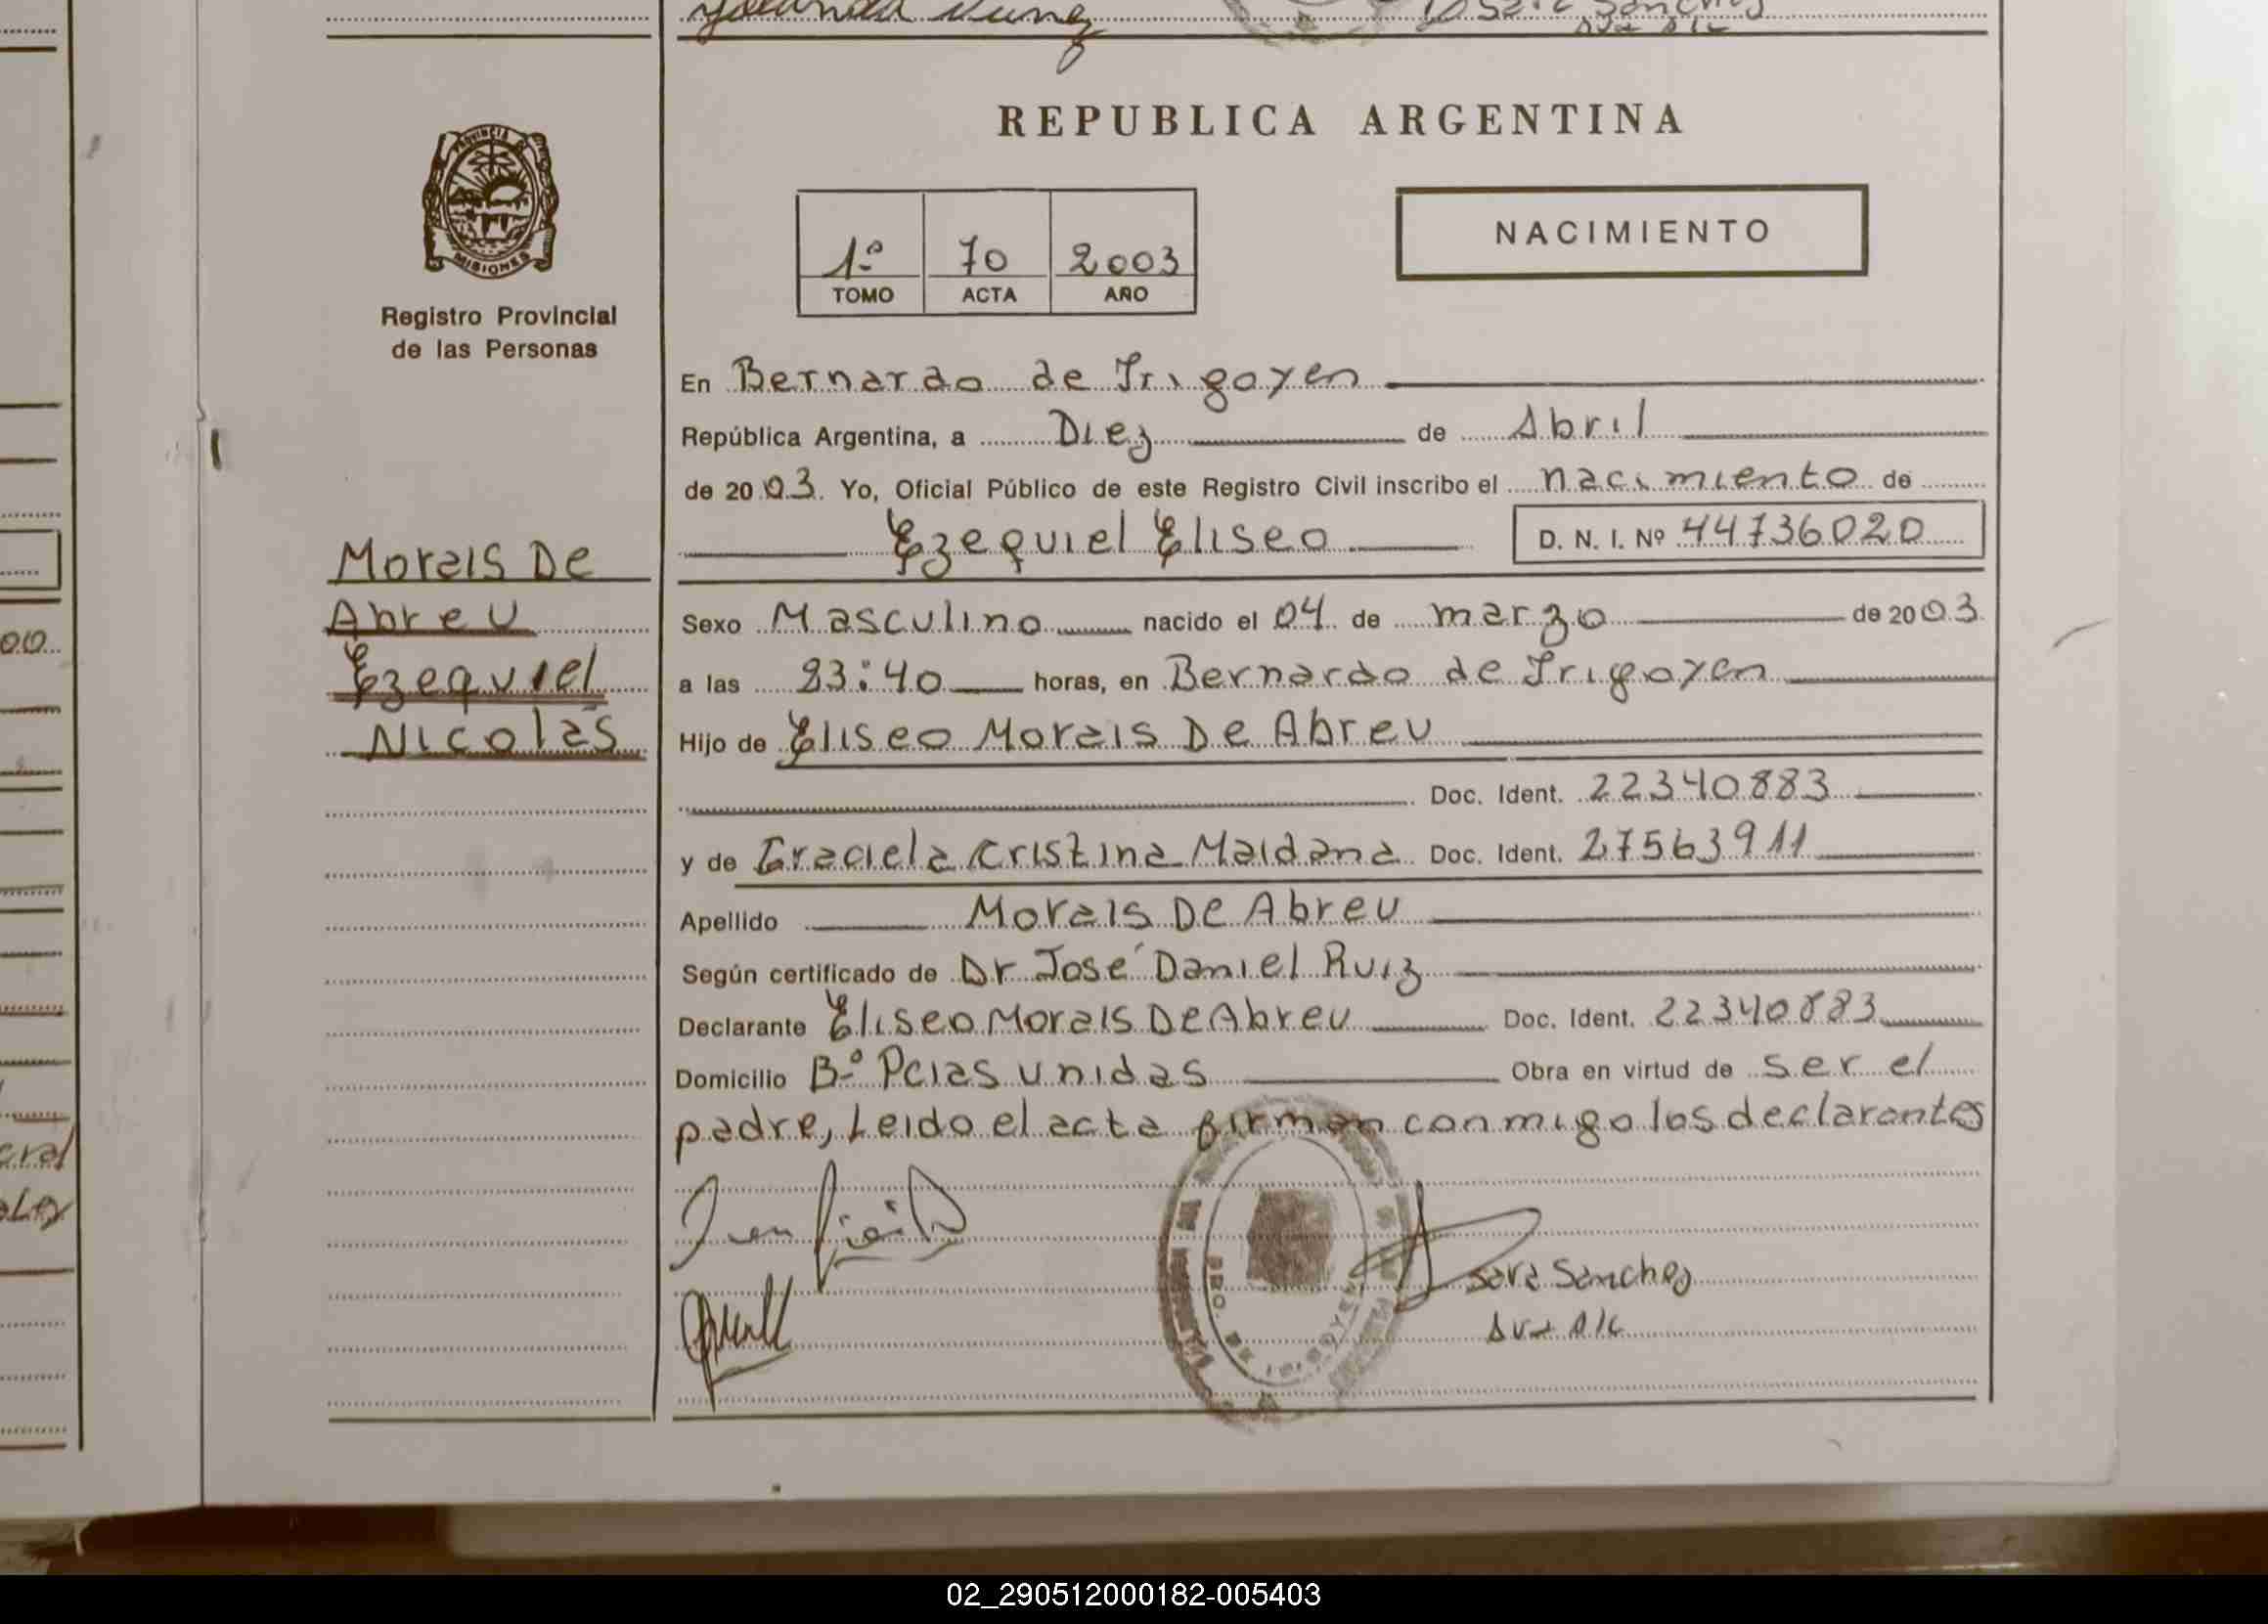 Yolanda Nunez
Sara Sanchez
REPUBLICA ARGENTINA
PROVINCIA DE
MISIONES
Registro Provincial
de las Personas
1º 70 2003
TOMO ACTA AÑO
NACIMIENTO
En Bernardo de Irigoyen
República Argentina, a Diez de Abril
de 2003. Yo, Oficial Público de este Registro Civil inscribo el nacimiento de
Ezequiel Eliseo D. N. I. Nº 44736020
Morais De
Abreu
Ezequiel
Nicolás
Sexo Masculino nacido el 04 de marzo de 2003
a las 23:40 horas, en Bernardo de Irigoyen
Hijo de Eliseo Morais De Abreu
Doc. Ident. 22340883
y de Graciela Cristina Maidana Doc. Ident. 27563911
Apellido Morais De Abreu
Según certificado de Dr José Daniel Ruiz
Declarante Eliseo Morais De Abreu Doc. Ident. 22340883
Domicilio Bº Pcias unidas Obra en virtud de ser el
padre, Leido el acta firman conmigo los declarantes
Sara Sanchez
BRO. DE IRIGOYEN
02_290512000182-005403